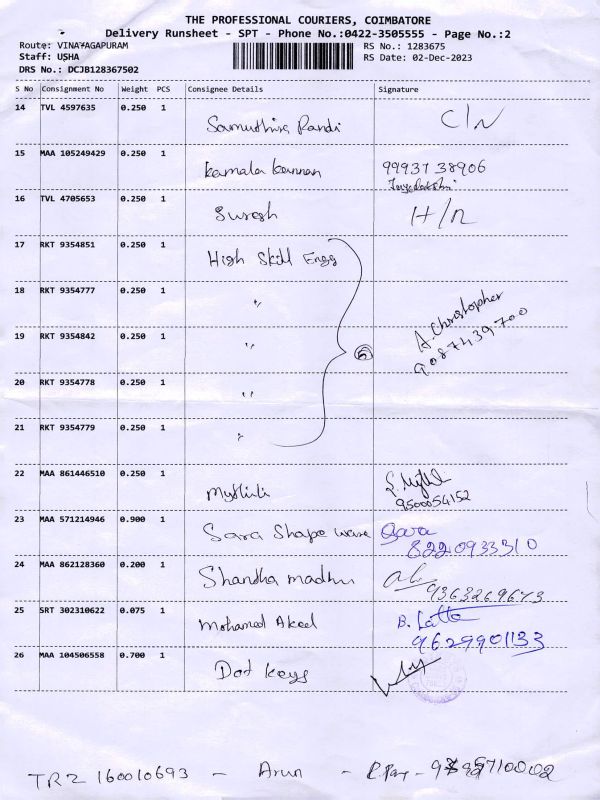 THE PROFESSIONAL COURIERS, COIMBATORE
Delivery Runsheet - SPT - Phone No.:0422-3505555 - Page No.:2
Route: VINAYAGAPURAM RS No.: 1283675
Staff: USHA RS Date: 02-Dec-2023
DRS No.: DCJB128367502
S No Consignment No Weight PCS Consignee Details Signature
14 TVL 4597635 0.250 1 Samuthira Pandi C/N
15 MAA 105249429 0.250 1 Kamala Kannan 99937 38906
16 TVL 4705653 0.250 1 Suresh H/N
17 RKT 9354851 0.250 1 High Skill Engg
18 RKT 9354777 0.250 1 "
19 RKT 9354842 0.250 1 " 5 A. Christopher
9087439700
20 RKT 9354778 0.250 1 "
21 RKT 9354779 0.250 1 "
22 MAA 861446510 0.250 1 Mythili
9500054152
23 MAA 571214946 0.900 1 Sara Shape wave Sara
8220933310
24 MAA 862128360 0.200 1 Shandha madhu
9363269673
25 SRT 302310622 0.075 1 Mohamed Akeel B. Latha
9629901133
26 MAA 104506558 0.700 1 Dot keys
TRZ 160010693 - Arun -